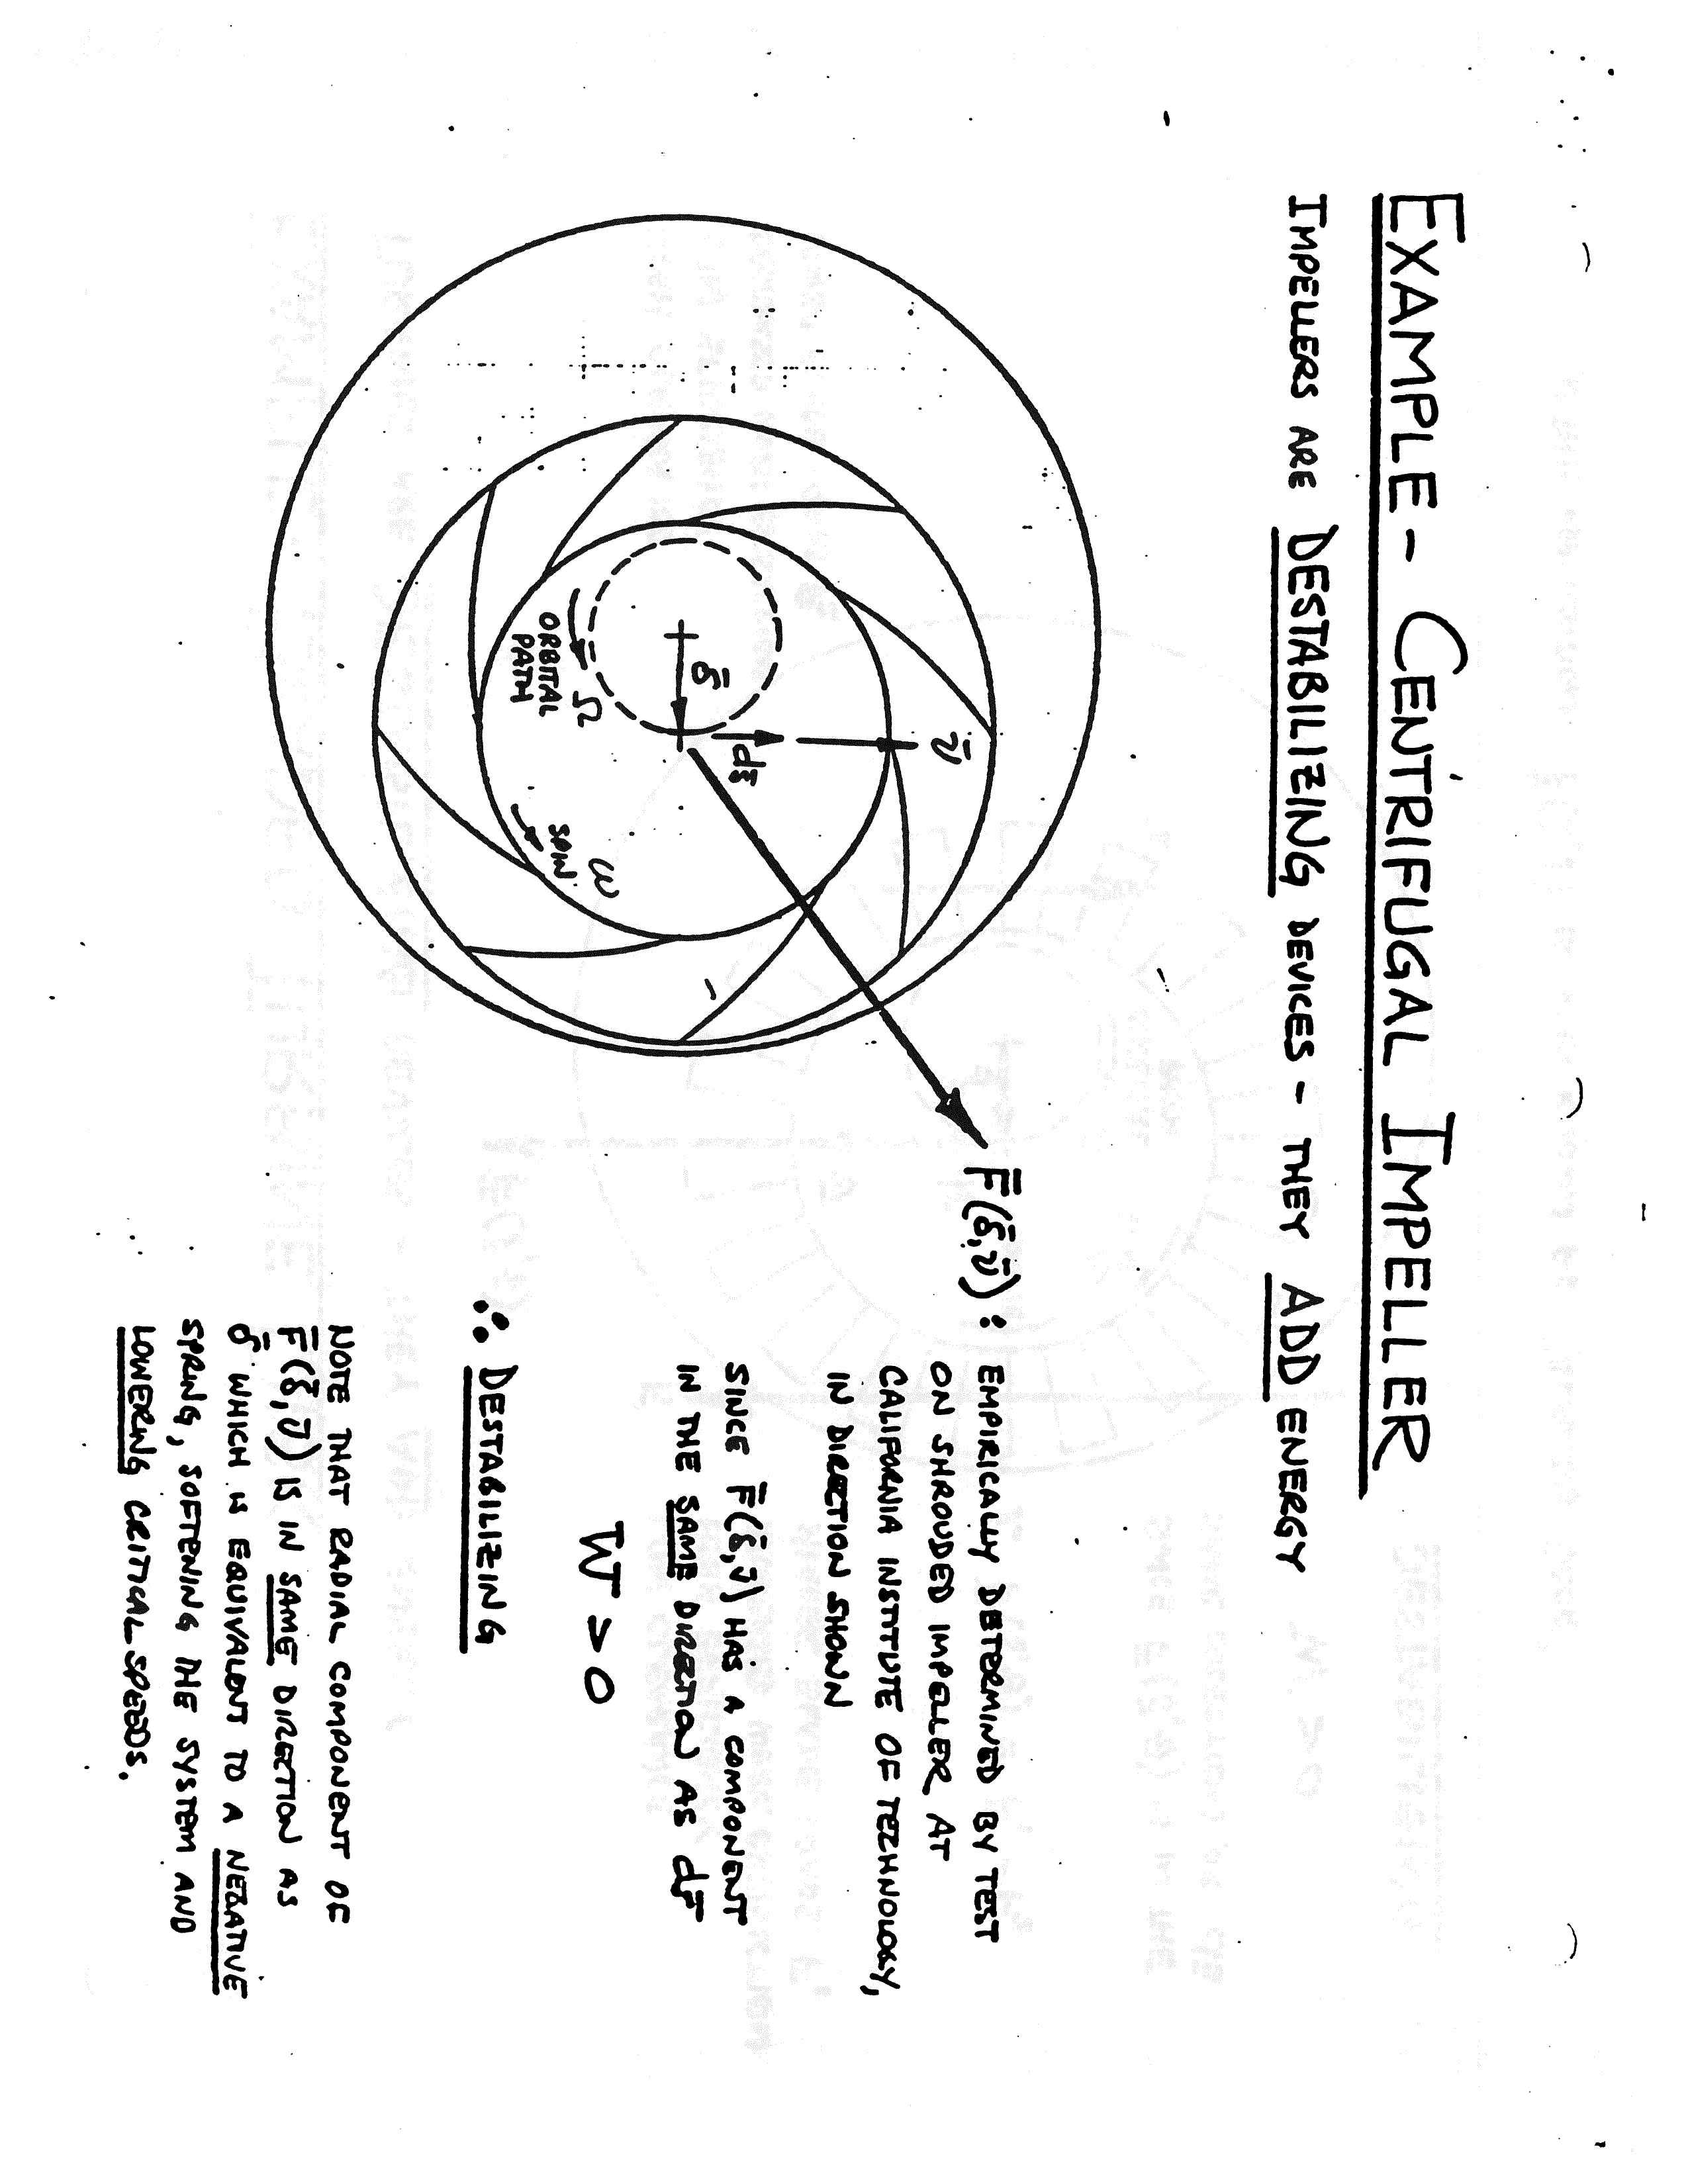 EXAMPLE - CENTRIFUGAL IMPELLER
IMPELLERS ARE DESTABILIZING DEVICES - THEY ADD ENERGY
δ̄
ν̄
ds̄
Ω
ORBITAL
PATH
ω
SPIN
F̄(δ̄,ν̄) :
EMPIRICALLY DETERMINED BY TEST
ON SHROUDED IMPELLER AT
CALIFORNIA INSTITUTE OF TECHNOLOGY,
IN DIRECTION SHOWN
SINCE F̄(δ̄,ν̄) HAS A COMPONENT
IN THE SAME DIRECTION AS ds̄
W > 0
∴ DESTABILIZING
NOTE THAT RADIAL COMPONENT OF
F̄(δ̄,ν̄) IS IN SAME DIRECTION AS
δ̄ WHICH IS EQUIVALENT TO A NEGATIVE
SPRING, SOFTENING THE SYSTEM AND
LOWERING CRITICAL SPEEDS.